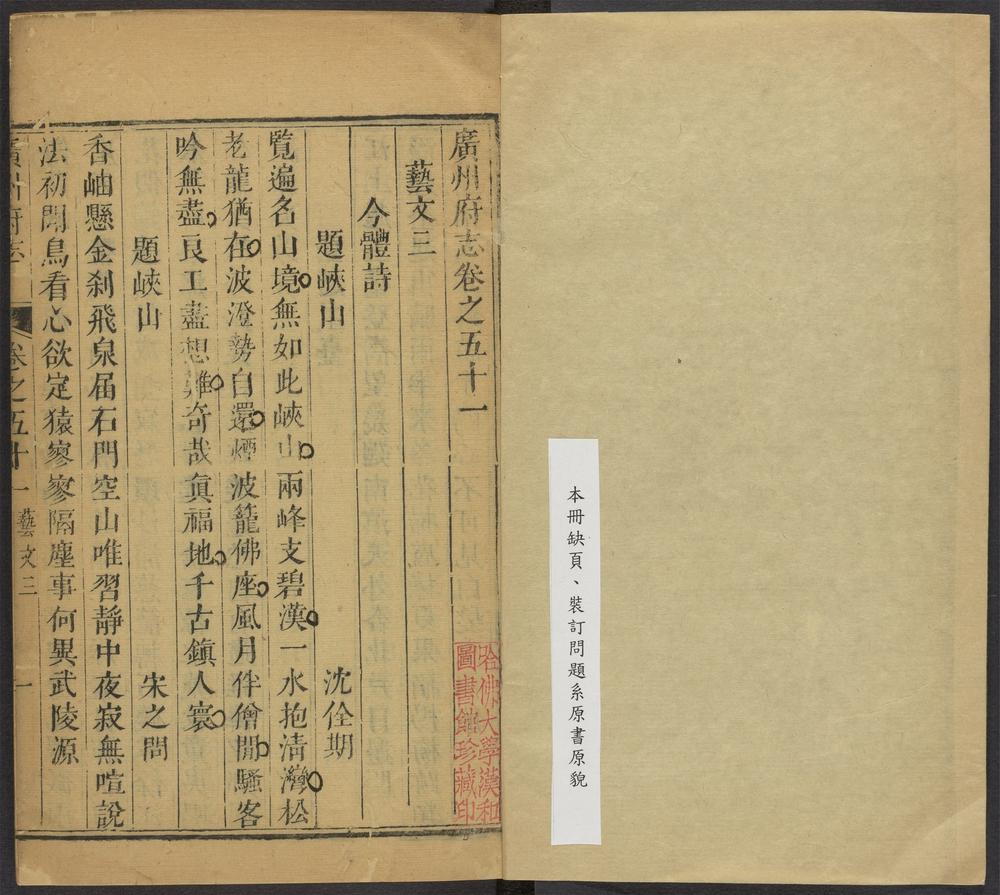 本冊缺頁、裝訂問題系原書原貌
廣州府志卷之五十一
哈佛大學漢和
圖書館珍藏印
藝文三
今體詩
題峽山 沈佺期
覧遍名山境無如此峽山兩峰支碧漢一水抱淸灣松
老龍猶在波澄勢自還煙波籠佛座風月伴僧閒騷客
吟無盡良工盡想難奇哉眞福地千古鎮人寰
題峽山 宋之問
香岫懸金刹飛泉届石門空山唯習靜中夜寂無喧說
法初聞鳥看心欲定猿寥寥隔塵事何異武陵源
廣州府志 卷之五十一 藝文三 一